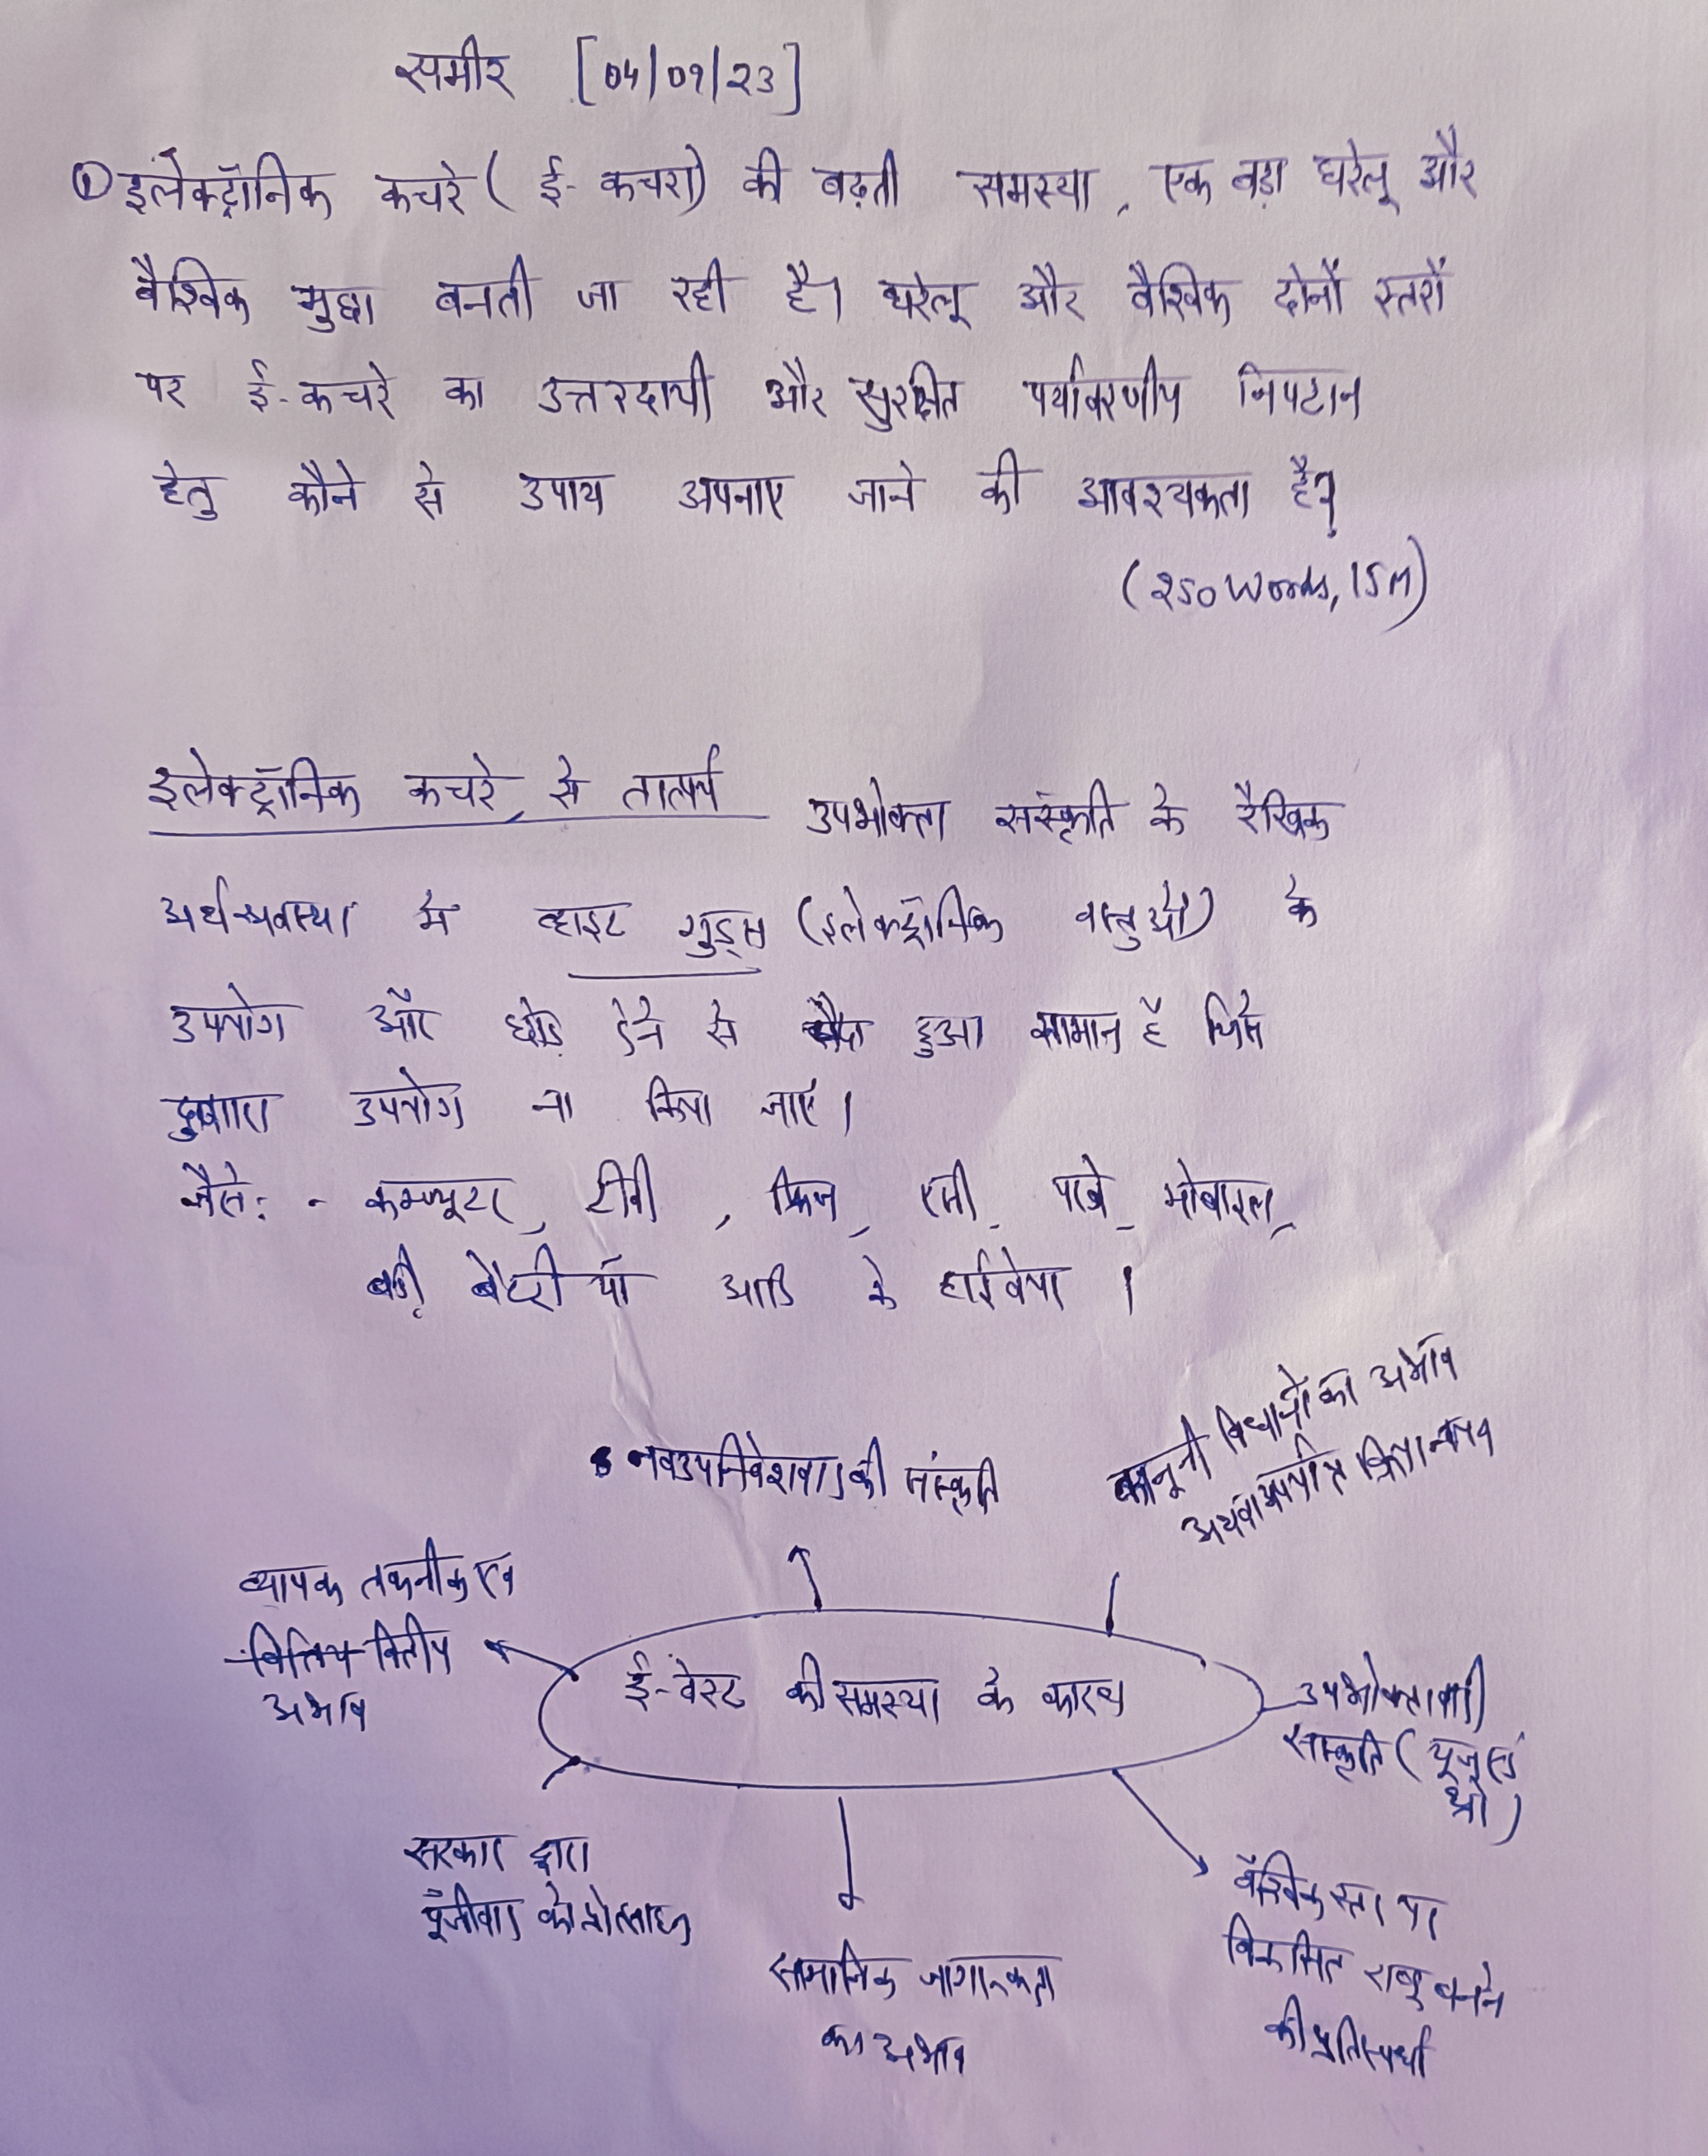 समीर [04/09/23]
① इलेक्ट्रॉनिक कचरे ( ई-कचरा) की बढ़ती समस्या, एक बड़ा घरेलू और
वैश्विक मुद्दा बनती जा रही है। घरेलू और वैश्विक दोनों स्तरों
पर ई-कचरे का उत्तरदायी और सुरक्षित पर्यावरणीय निपटान
हेतु कौने से उपाय अपनाए जाने की आवश्यकता है?
(250 Words, 15M)
इलेक्ट्रॉनिक कचरे से तात्पर्य उपभोक्ता संस्कृति के रैखिक
अर्थव्यवस्था में व्हाइट गुड्स (इलेक्ट्रॉनिक वस्तुओं) के
उपयोग और छोड़ देने से पैदा हुआ सामान है जिसे
दुबारा उपयोग ना किया जाए।
जैसे: - कम्प्यूटर, टीवी, फ्रिज, एसी, मोबाइल,
बड़ी बैटरीयाँ आदि के हार्डवेयर ।
नवउपनिवेशवाद की संस्कृति
कानूनी विधानों का अभाव
अथवा अपर्याप्त क्रियान्वयन
व्यापक तकनीक एवं
वित्तिय वित्तीय
अभाव
ई-वेस्ट की समस्या के कारण
उपभोक्तावादी
संस्कृति ( यूज एंड
थ्रो )
सरकार द्वारा
पूँजीवाद को प्रोत्साहन
सामाजिक जागरूकता
का अभाव
वैश्विक स्तर पर
विकसित राष्ट्र बनने
की प्रतिस्पर्धा